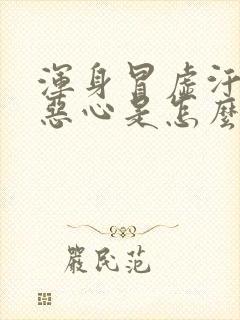 渾身冒虛汗
惡心是怎麼
嚴民范